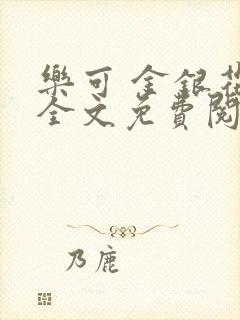 樂可 金銀花
全文免費閱
乃鹿